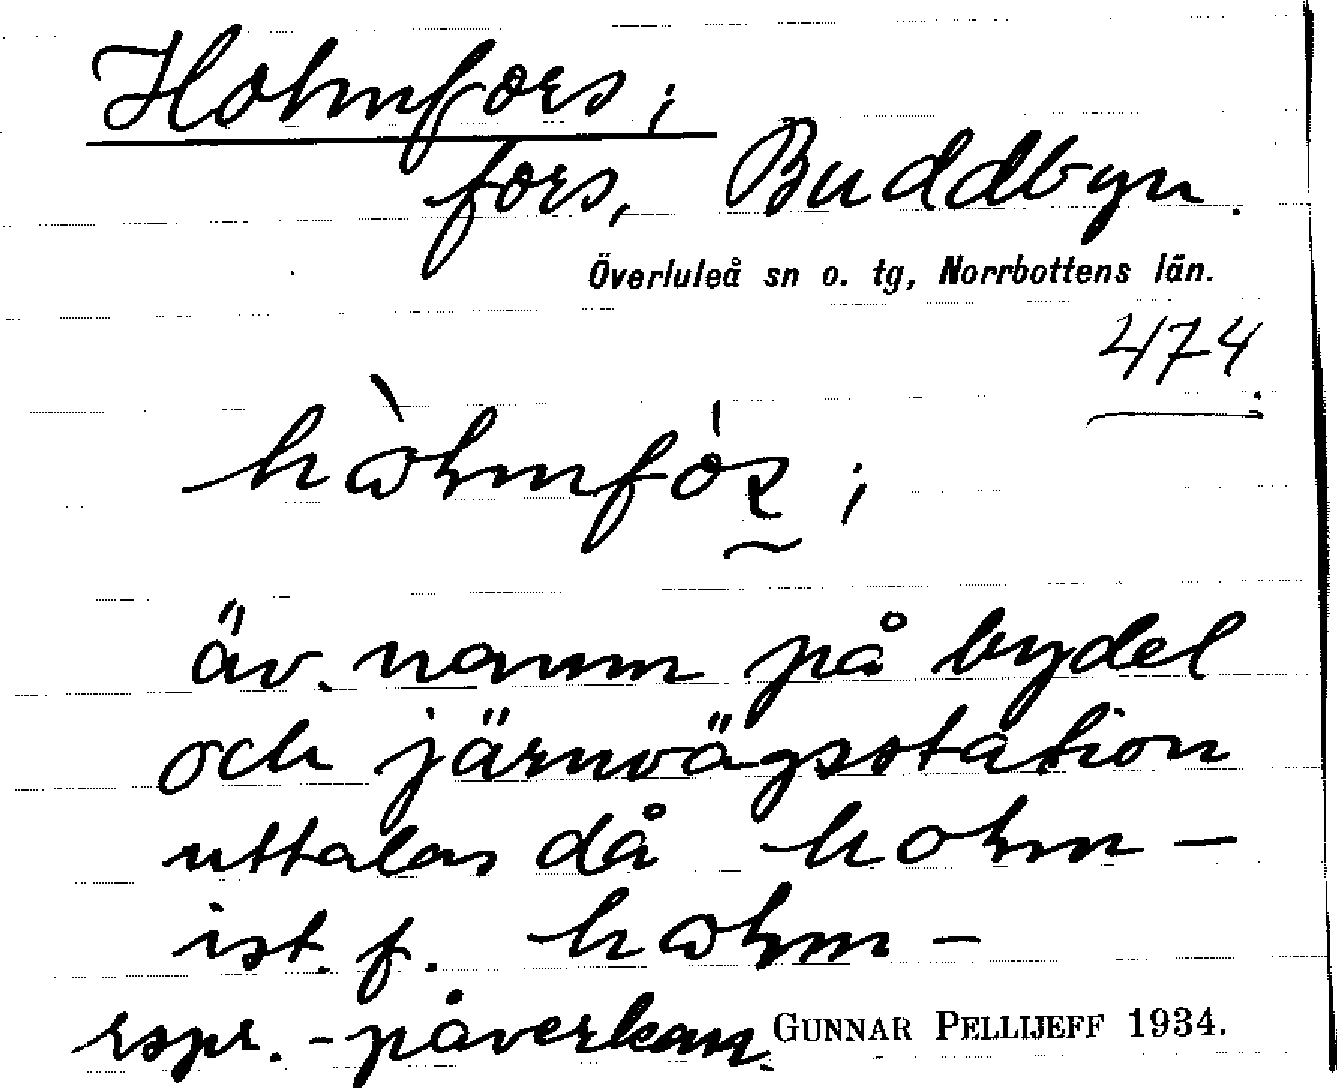 Holmfors;
fors, Buddbyn.
Överluleå sn o. tg, Norrbottens län.
474.
äv. namn på bydel
och järnvägsstation
uttalas då holm-
ist. f.
rspr.-påverkan. GUNNAR PELLIJEFF 1934.